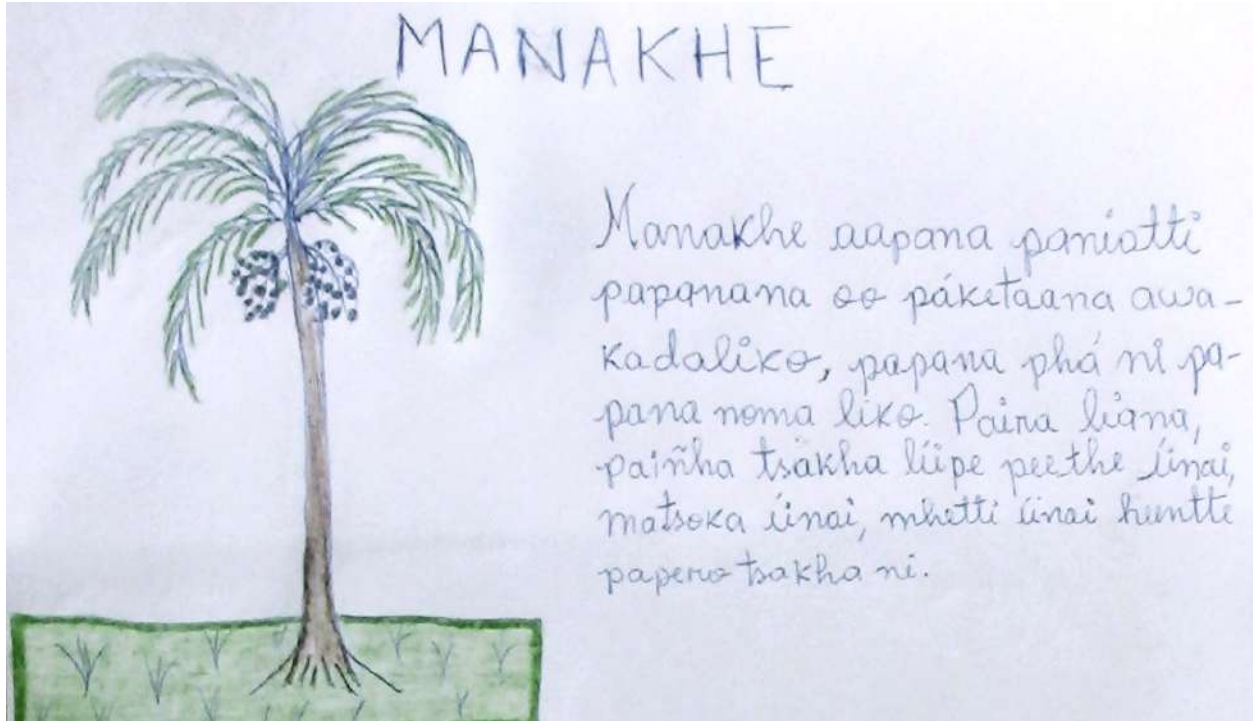 MANAKHE
Manakhe aapana paniatti
papanana oo páketaana awa-
kadaliko, papana phá ni pa-
pana noma liko. Paira liana,
paiñha tsakha liipe peethe iinai,
matsoka iinai, mhetti iinai heentte
papero tsakha ni.